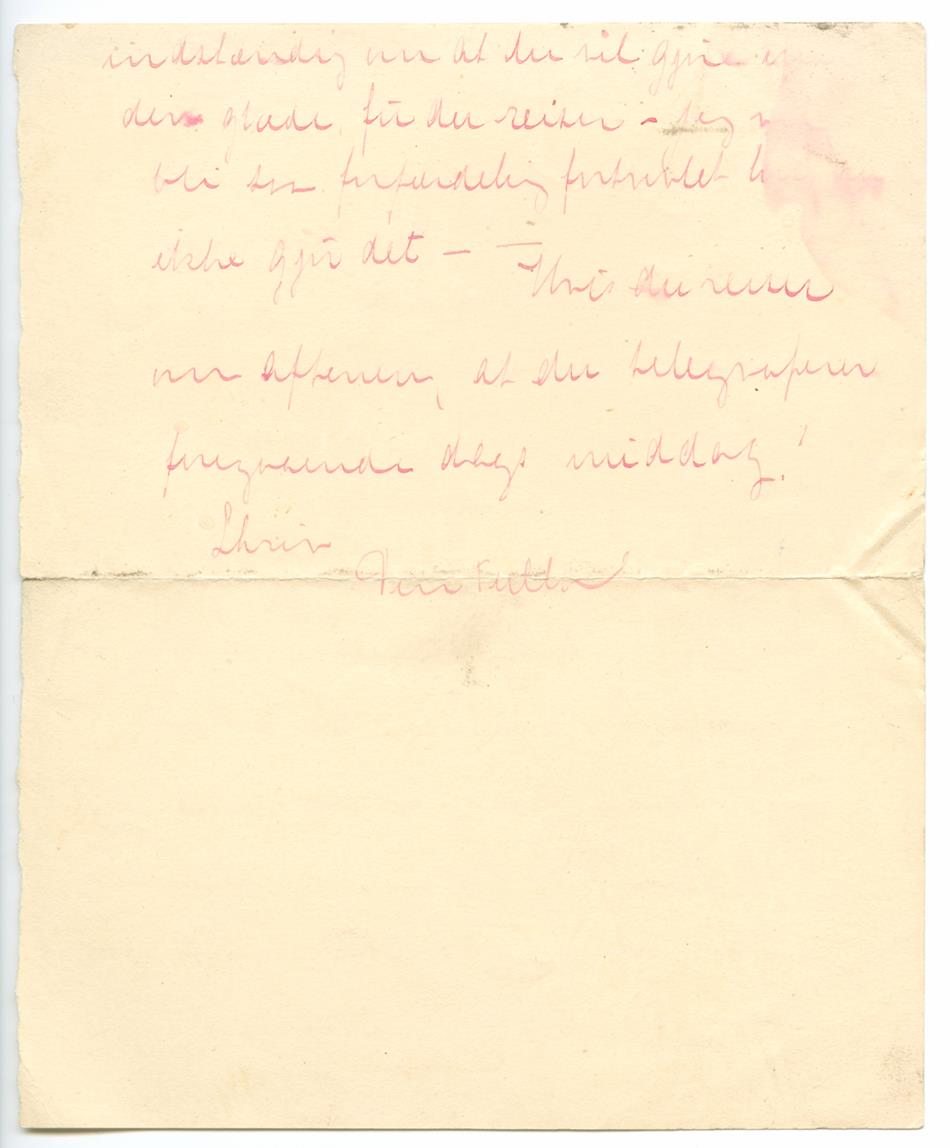 indstændig om at du vil gjøre
den glæde, før du reiser – jeg
bli saa forfærdelig fortvilet
ikke gjør det – –
Hvis du reiser
om aftenen, at du telegraferer
foregaaende dags middag!
Skriv
Din Tulla